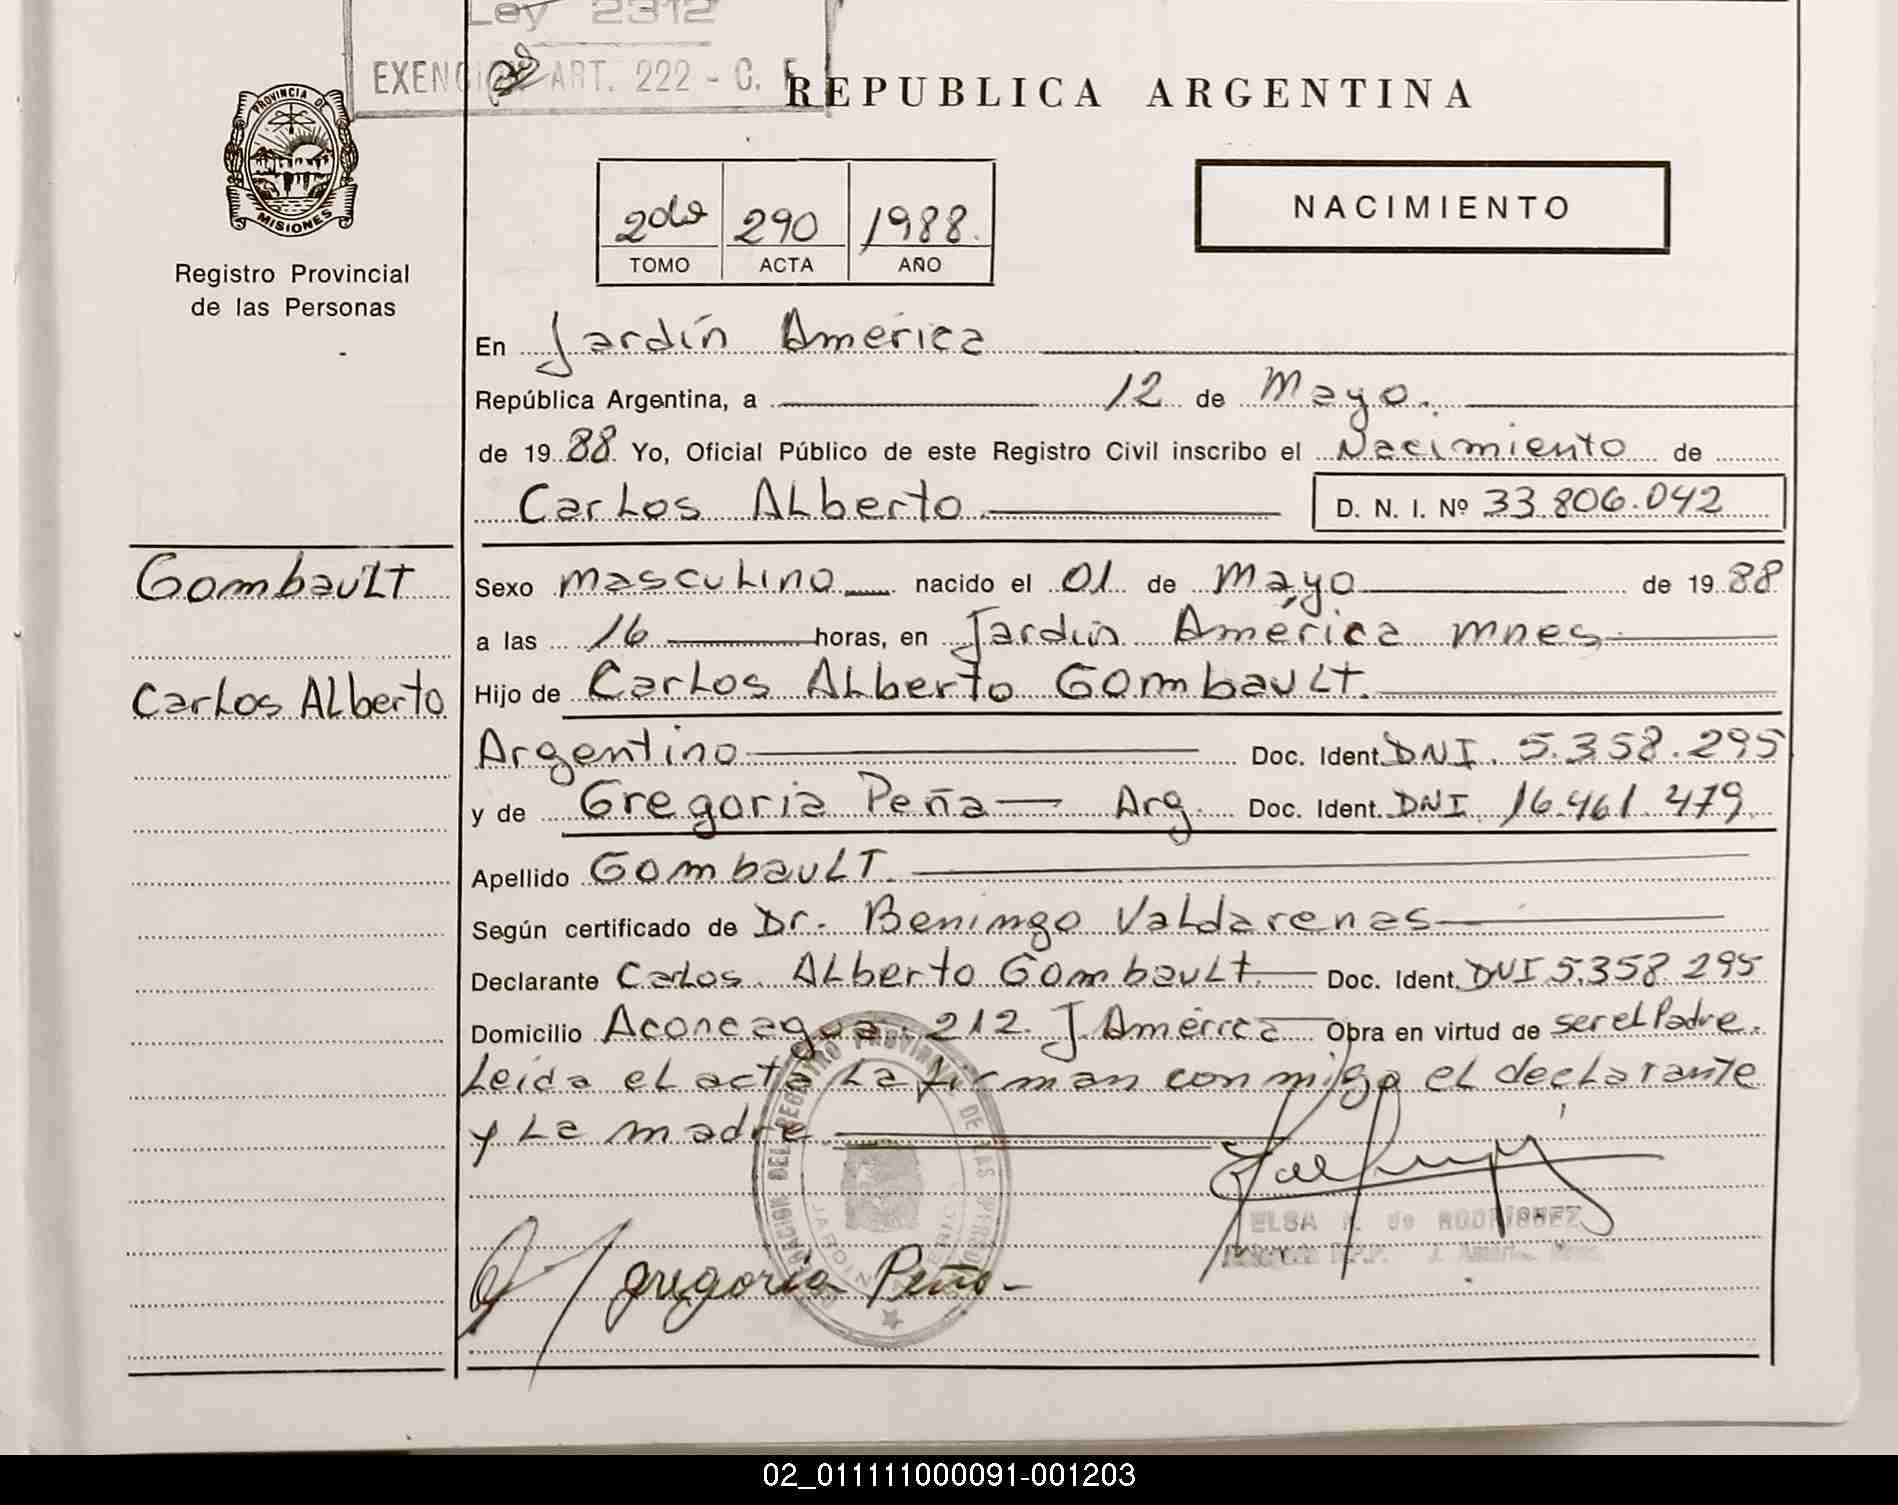 Ley 2312
EXENCION ART. 222 - C. F.
REPUBLICA ARGENTINA
PROVINCIA DE
MISIONES
Registro Provincial
de las Personas
NACIMIENTO
2do 290 1988.
TOMO ACTA AÑO
En Jardín América
República Argentina, a 12 de Mayo.
de 19 88 Yo, Oficial Público de este Registro Civil inscribo el Nacimiento de
Carlos Alberto D. N. I. Nº 33.806.042
Gombault
Carlos Alberto
Sexo masculino nacido el 01 de Mayo de 19 88
a las 16 horas, en Jardín América mnes
Hijo de Carlos Alberto Gombault.
Argentino Doc. Ident. DNI. 5.358.295
y de Gregoria Peña Arg. Doc. Ident. DNI 16.461.479
Apellido Gombault
Según certificado de Dr. Benimgo Valdarenas
Declarante Carlos Alberto Gombault Doc. Ident. DNI 5.358.295
Domicilio Aconcagua 212. J América Obra en virtud de ser el Padre.
Leída el acta la firman conmigo el declarante
y la madre
ELSA de RODRIGUEZ
gregoria Peña
02_011111000091-001203